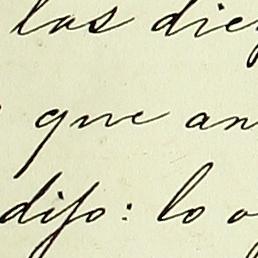 las diez
que an
dijo: lo